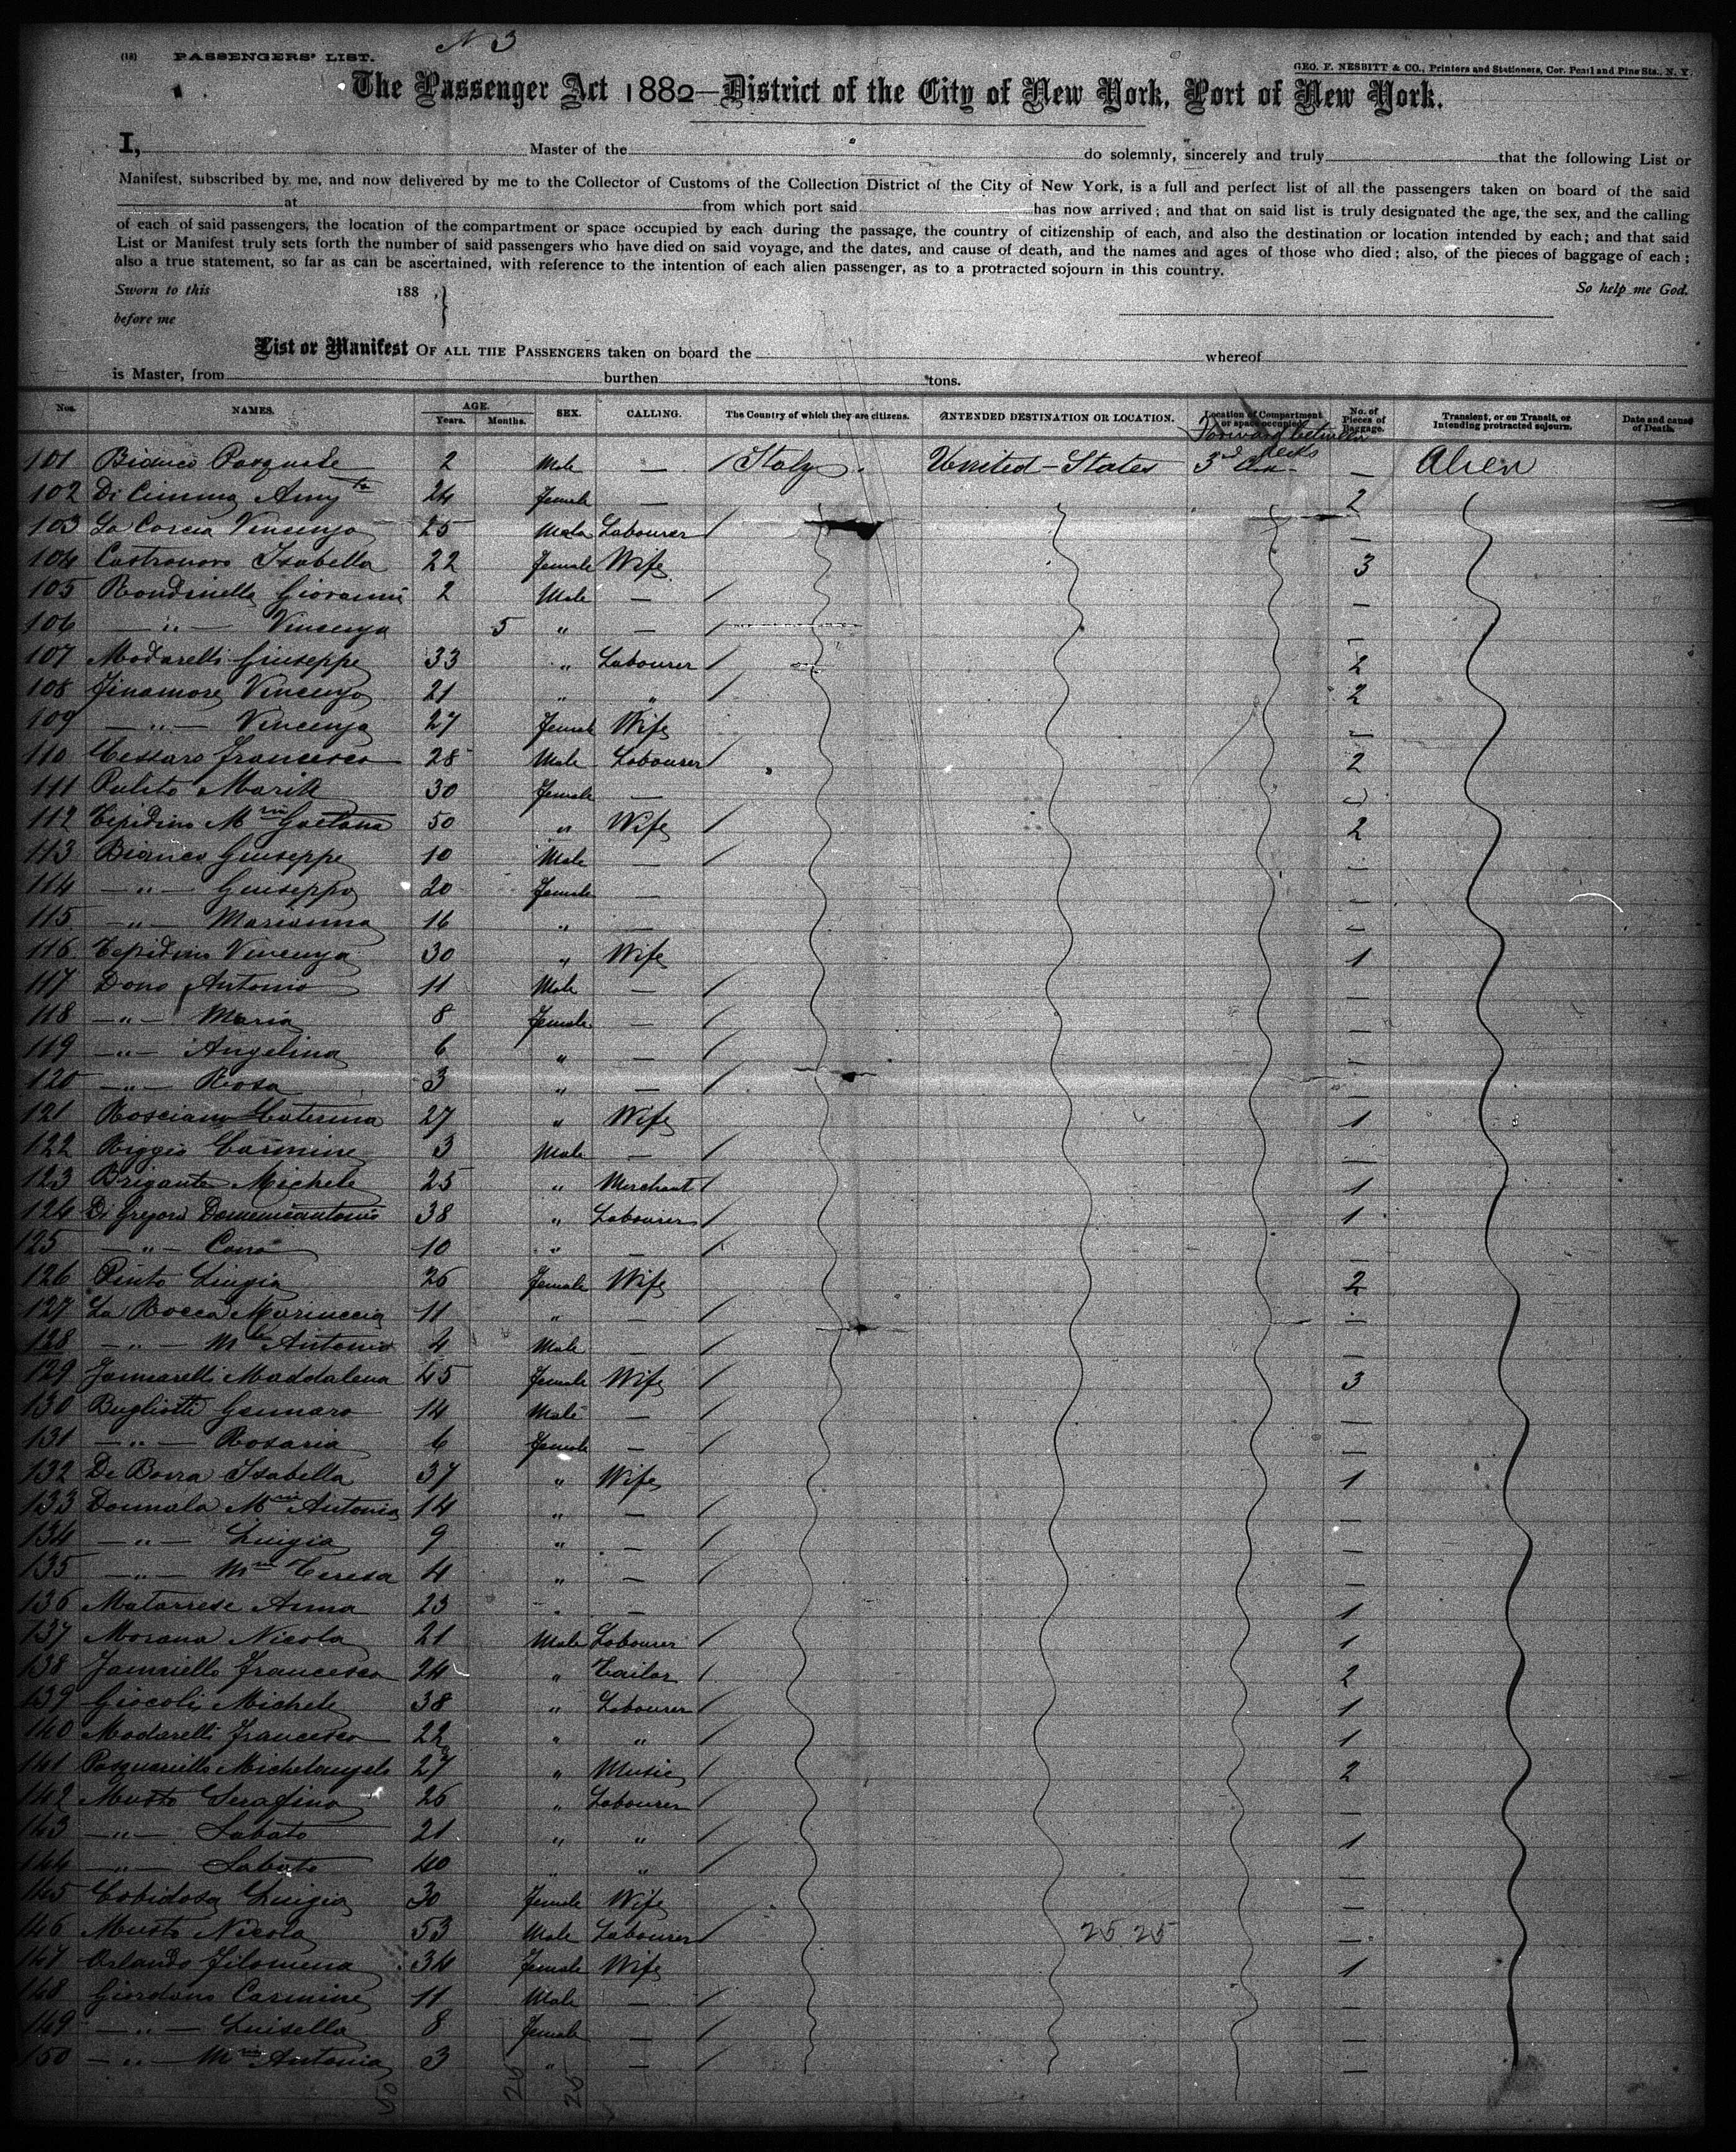 N 3
(18) PASSENGERS' LIST.
GEO. F. NESBITT & CO., Printers and Stationers, Cor. Pearl and Pine Sts., N. Y.
The Passenger Act 1882—District of the City of New York, Port of New York.
I, Master of the do solemnly, sincerely and truly that the following List or
Manifest, subscribed by me, and now delivered by me to the Collector of Customs of the Collection District of the City of New York, is a full and perfect list of all the passengers taken on board of the said
at from which port said has now arrived; and that on said list is truly designated the age, the sex, and the calling
of each of said passengers, the location of the compartment or space occupied by each during the passage, the country of citizenship of each, and also the destination or location intended by each; and that said
List or Manifest truly sets forth the number of said passengers who have died on said voyage, and the dates, and cause of death, and the names and ages of those who died; also, of the pieces of baggage of each;
also a true statement, so far as can be ascertained, with reference to the intention of each alien passenger, as to a protracted sojourn in this country.
Sworn to this 188 , } So help me God.
before me
List or Manifest OF ALL THE PASSENGERS taken on board the whereof
is Master, from burthen tons.
Nos. NAMES. AGE. Years. Months. SEX. CALLING. The Country of which they are citizens. INTENDED DESTINATION OR LOCATION. Location of Compartment or space occupied. No. of Pieces of Baggage. Transient, or on Transit, or Intending protracted sojourn. Date and cause of Death.
Forward between decks
101 Bianco Pasquale 2 Male — / Italy United-States 3rd — Alien
102 Di Cimma 24 Female — 2
103 La Corcia Vincenzo 25 Male Labourer / —
104 Castronovo Isabella 22 Female Wife 3
105 Rondinella Giovanni 2 Male — / —
106 —"— Vincenzo 5 " — / —
107 Modarelli Giuseppe 33 " Labourer / 2
108 Finamore Vincenzo 21 " " / 2
109 —"— Vincenza 27 Female Wife —
110 Cessaro Francesco 28 Male Labourer / 2
111 Pulito Maria 30 Female — —
112 Cepidino Mria Gaetana 50 " Wife / 2
113 Bianco Giuseppe 10 Male — / —
114 —"— Giuseppa 20 Female — —
115 —"— Marianna 16 " — —
116 Cepidino Vincenza 30 " Wife 1
117 Dono Antonio 11 Male — / —
118 —"— Maria 8 Female — / —
119 —"— Angelina 6 " — / —
120 —"— Rosa 3 " — / —
121 Rosciano Caterina 27 " Wife 1
122 Riggio Carmine 3 Male — / —
123 Brigante Michele 25 " Merchant / 1
124 Di Gregorio Domenicantonio 38 " Labourer / 1
125 —"— 10 " — / —
126 Pinto Luigia 26 Female Wife 2
127 La Rocca Mariuccia 11 " — / —
128 —"— Antonio 4 Male — / —
129 Jannarelli Maddalena 45 Female Wife / 3
130 Bugliotti Gennaro 14 Male — / —
131 —"— Rosaria 6 Female — / —
132 De Borra Isabella 37 " Wife 1
133 Donnala Mria Antonia 14 " — / —
134 —"— Luigia 9 " — / —
135 —"— Mria Teresa 4 " — / —
136 Matarrese Anna 23 " — 1
137 Morana Nicola 21 Male Labourer / 1
138 Janniello Francesco 24 " Tailor / 2
139 Giocoli Michele 38 " Labourer / 1
140 Modarelli Francesco 22 " " / 1
141 Pasquariello Michelangelo 27 " Music / 2
142 Musto Serafino 26 " Labourer / —
143 —"— Sabato 21 " " / 1
144 —"— Sabato 40 " " / —
145 Luigia 30 Female Wife —
146 Musto Nicola 53 Male Labourer / 25 25 —
147 Orlando Filomena 34 Female Wife 1
148 Giordano Carmine 11 Male — / —
149 —"— Luisella 8 Female — / —
150 —"— Mria Antonia 3 " — / —
50 25 25